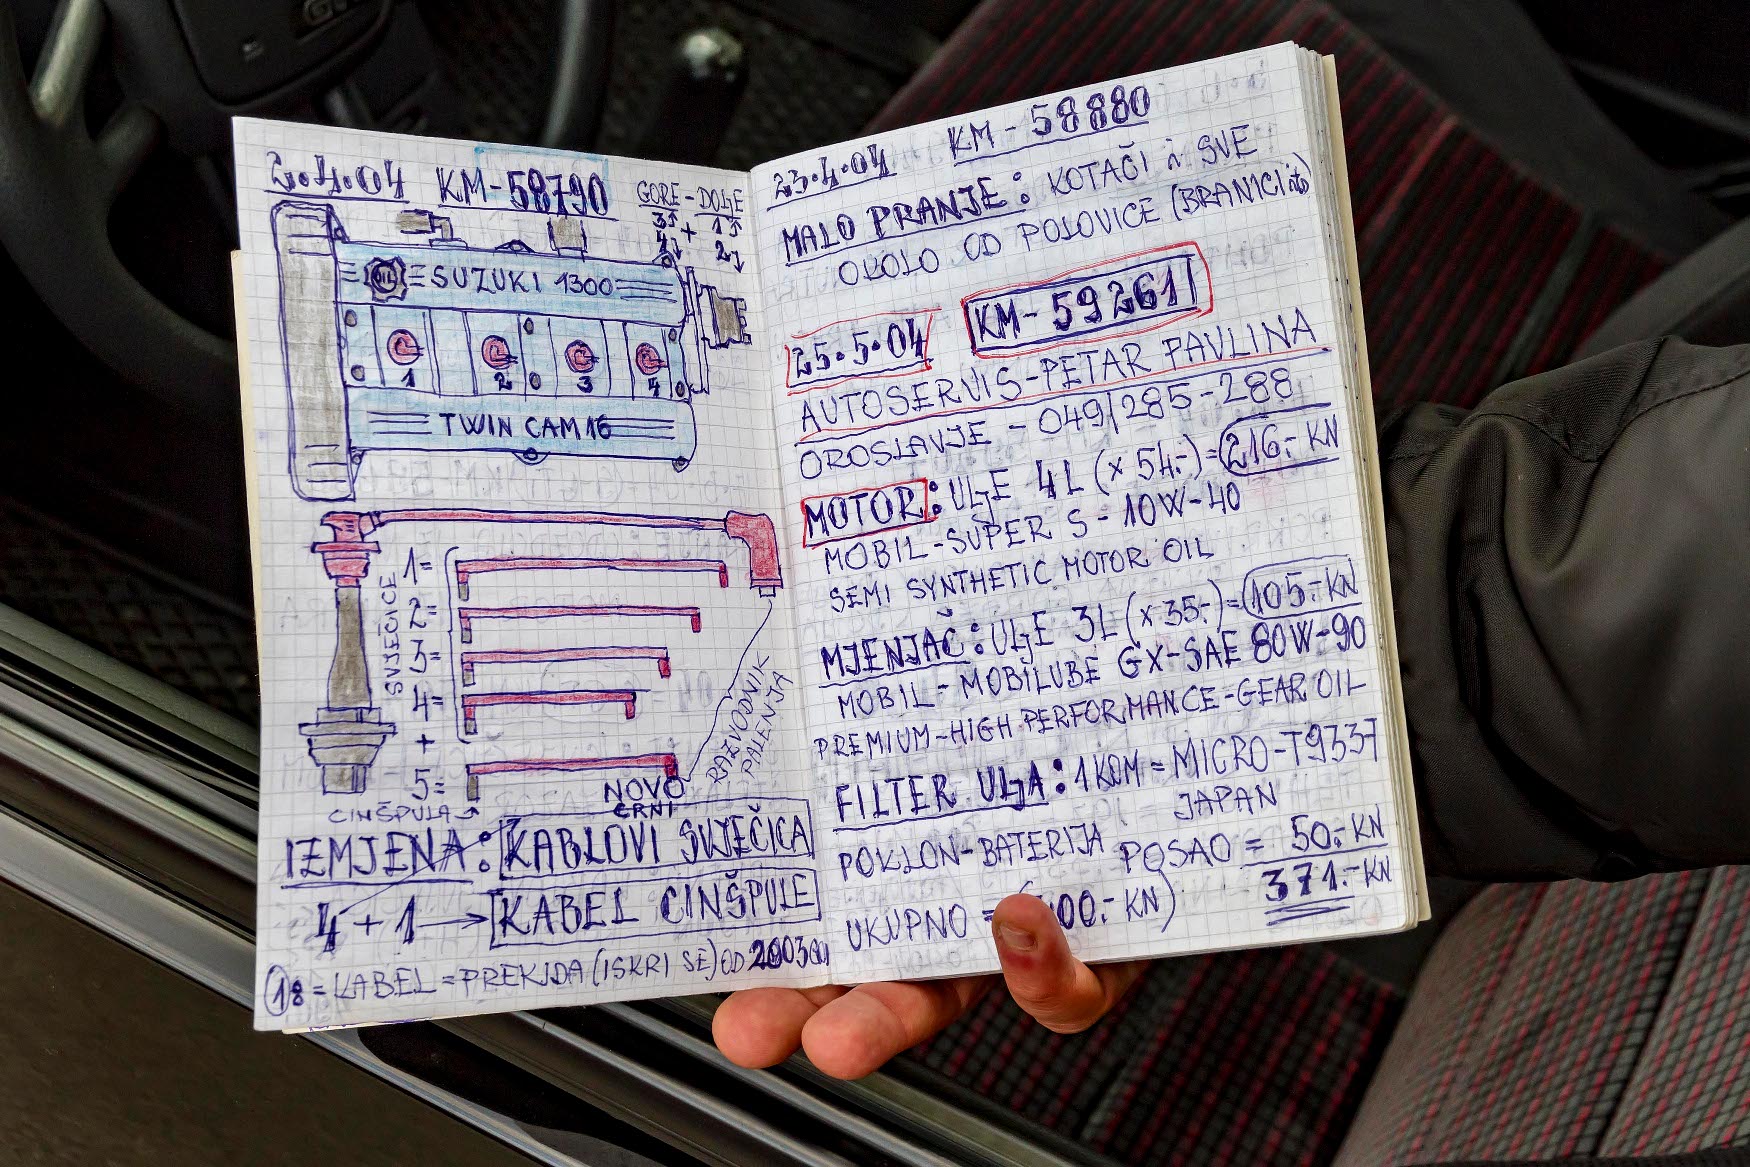 2.4.04 KM-58790
GORE-DOLJE
3↑ 1↑
4↓ + 2↓
OIL SUZUKI 1300
1 2 3 4
TWIN CAM 16
SVJEČICE
1=
2=
3=
4=
+
5=
RAZVODNIK
PALJENJA
NOVO
CRNI
CINŠPULA→
IZMJENA: KABLOVI SVJEČICA
4+1→ KABEL CINŠPULE
= KABEL = PREKIDA (ISKRI SE) OD
23.4.04 KM-58880
MALO PRANJE: KOTAČI i SVE
OKOLO OD POLOVICE (BRANICI
25.5.04 KM-59261
AUTOSERVIS-PETAR PAVLINA
OROSLAVJE - 049/285-288
MOTOR: ULJE 4L (x 54.-) = 216.- KN
MOBIL-SUPER S-10W-40
SEMI SYNTHETIC MOTOR OIL
MJENJAČ: ULJE 3L (x 35.-) = 105.- KN
MOBIL-MOBILUBE GX-SAE 80W-90
PREMIUM-HIGH PERFORMANCE-GEAR OIL
FILTER ULJA: 1 KOM = MICRO-T9337
JAPAN
POKLON-BATERIJA POSAO = 50.- KN
UKUPNO = 00.- KN) 371.- KN